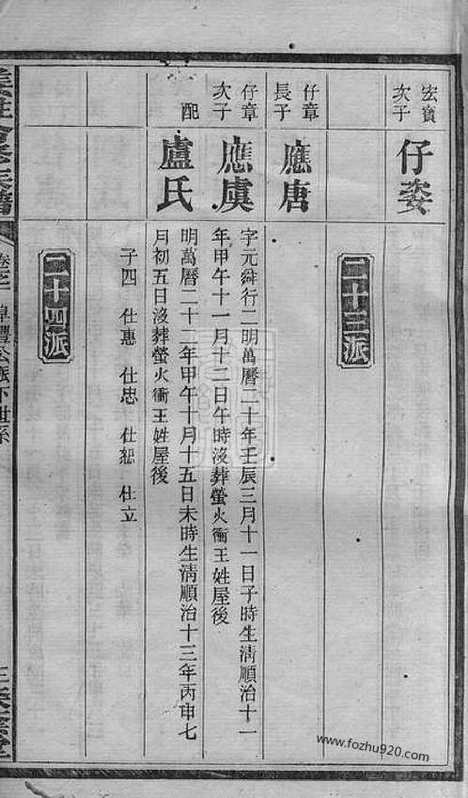 宏寶次子
仔姿
二十三派
仔章長子
應唐
仔章次子
應虞
字元舜行二明萬曆二十年壬辰三月十一日子時生淸順治十一
年甲午十一月十二日午時沒葬螢火衝王姓屋後
配
盧氏
明萬曆二十二年甲午十月十五日未時生淸順治十三年丙申七
月初五日沒葬螢火衝王姓屋後
子四 仕惠 仕忠 仕恕 仕立
二十四派
www.fozhu920.com